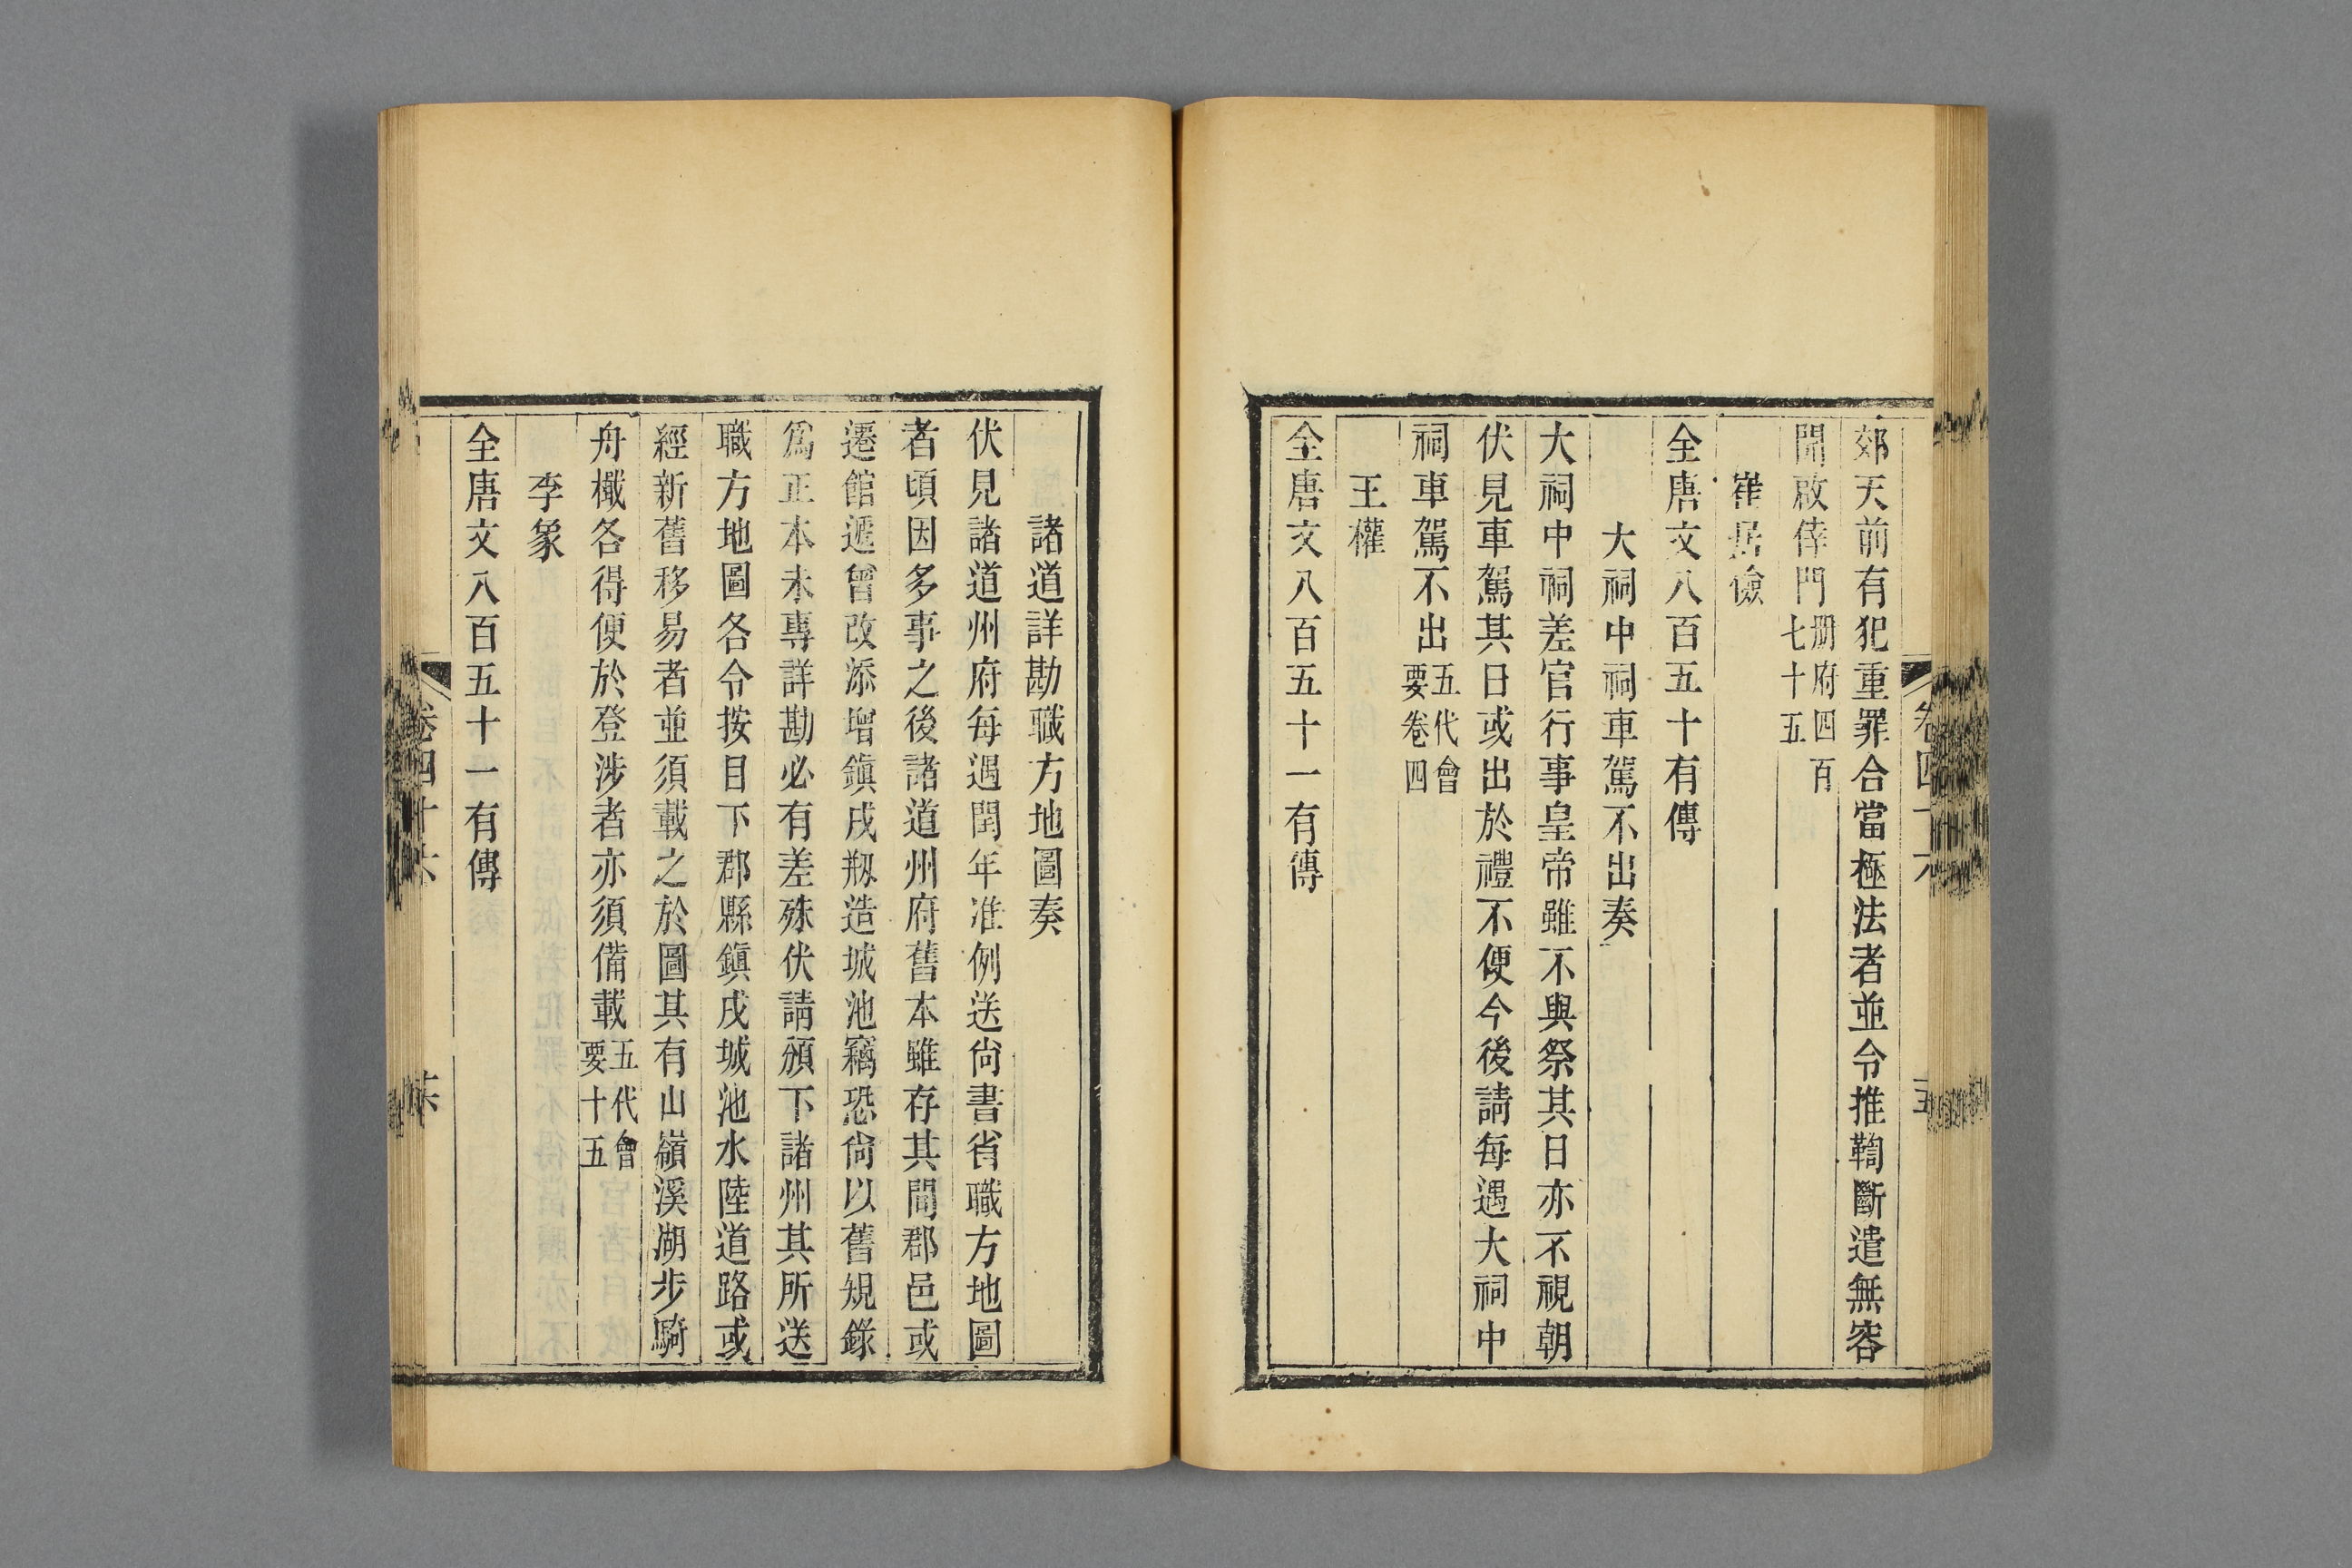 郊天前有犯重罪合當極法者並令推鞫斷遣無容
開啟倖門册府四百七十五
崔居儉
全唐文八百五十有傳
大祠中祠車駕不出奏
大祠中祠差官行事皇帝雖不與祭其日亦不視朝
伏見車駕其日或出於禮不便今後請每遇大祠中
祠車駕不出五代會要卷四
王權
全唐文八百五十一有傳
諸道詳勘職方地圖奏
伏見諸道州府每遇閏年准例送尙書省職方地圖
者頃因多事之後諸道州府舊本雖存其間郡邑或
遷館遞曾改添增鎭戍剏造城池竊恐尙以舊規錄
爲正本未專詳勘必有差殊伏請頒下諸州其所送
職方地圖各令按目下郡縣鎭戍城池水陸道路或
經新舊移易者並須載之於圖其有山嶺溪湖步騎
舟檝各得便於登涉者亦須備載五代會要十五
李象
全唐文八百五十一有傳
卷四十六